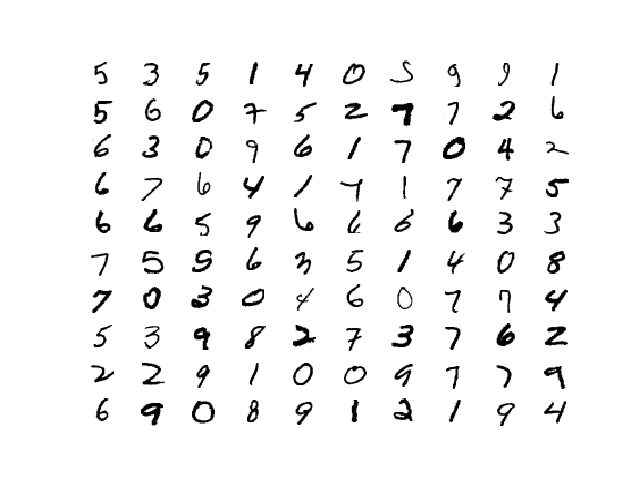 5 3 5 1 4 0 5 9 9 1
5 6 0 7 5 2 7 7 2 6
6 3 0 9 6 1 7 0 4 2
6 7 6 4 1 4 1 7 7 5
6 6 5 9 6 6 6 6 3 3
7 5 9 6 3 5 1 4 0 8
7 0 3 0 4 6 0 7 7 4
5 3 9 8 2 7 3 7 6 2
2 2 9 1 0 0 9 7 7 9
6 9 0 8 9 1 2 1 9 4